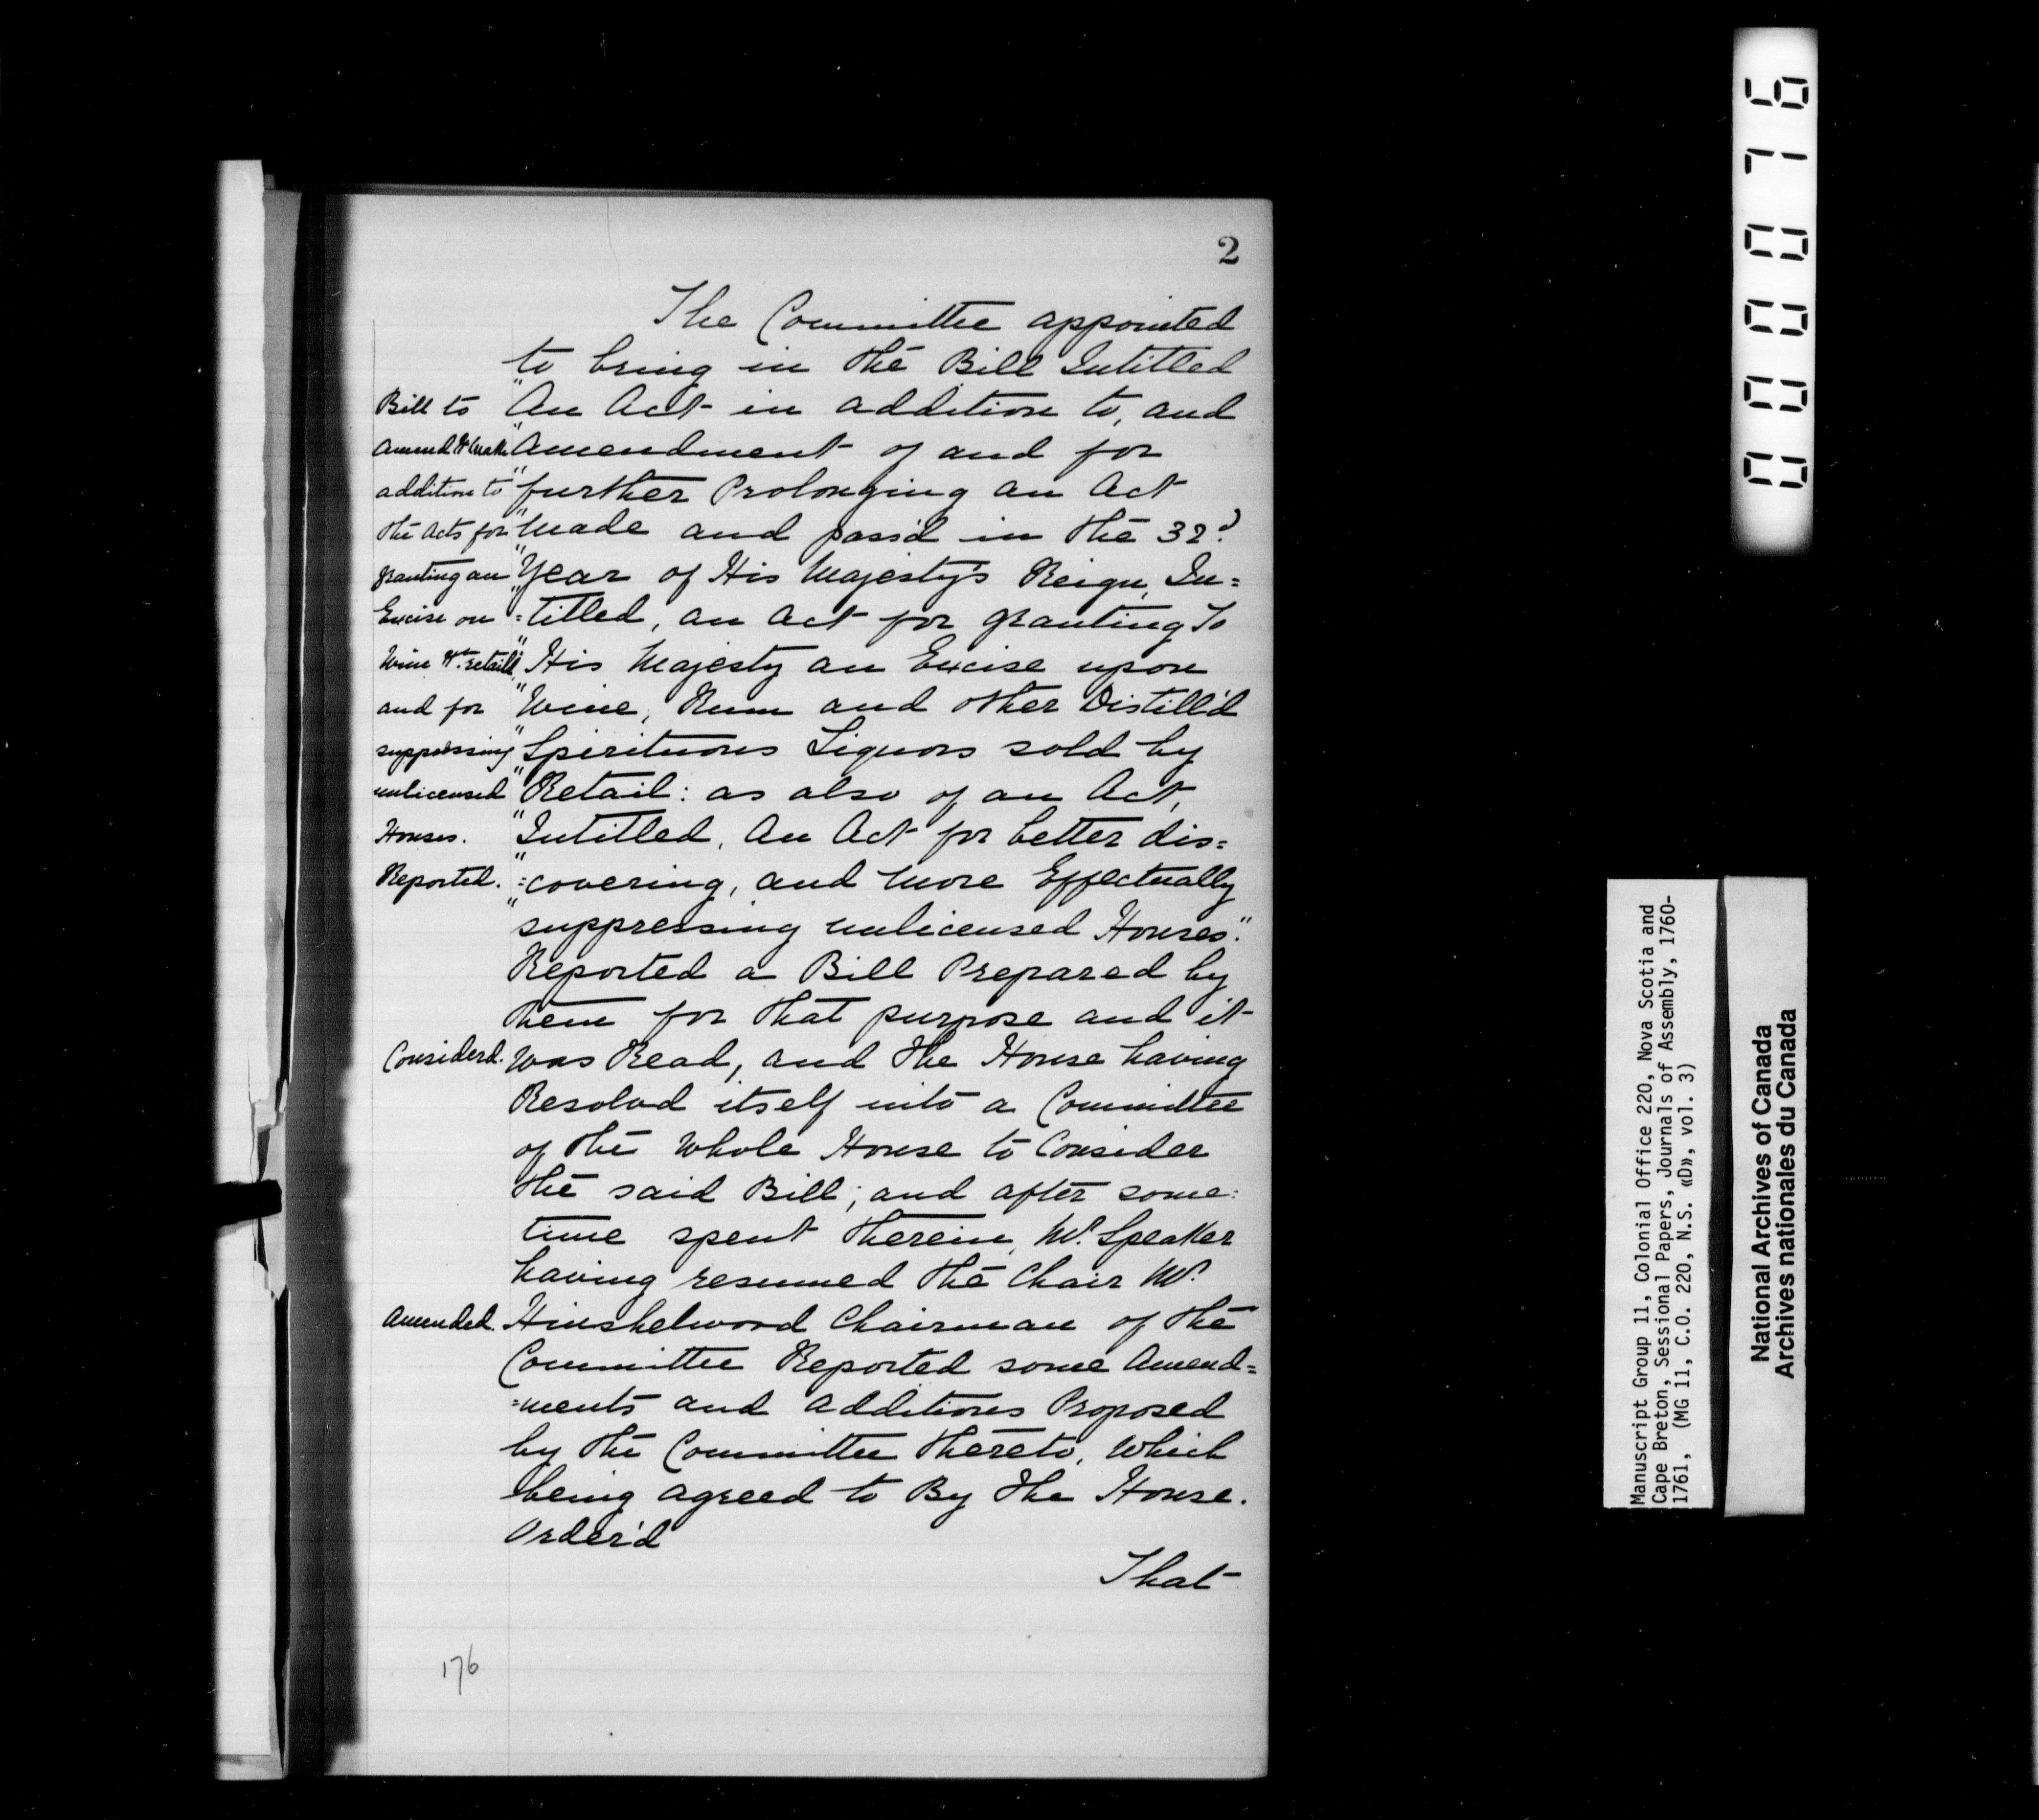 2
The Committee appointed
to bring in the Bill Intitled
Bill to "An Act in addition to, and
amend & make "amendment of and for
addition to "further Prolonging an Act
the Acts for "made and pass'd in the 32d
granting an "Year of His Majesty's Reign, In=
Excise on "=titled, an Act for granting To
Wine &ca retaild "His Majesty an Excise upon
and for "Wine, Rum and other Distill'd
suppressing "Spirituous Liquors sold by
unlicensed "Retail: as also of an Act,
Houses. "Intitled, An Act for better dis=
Reported. "=covering, and more Effectually
"suppressing unlicensed Houses."
Reported a Bill Prepared by
them for that purpose and it
Considerd. was Read, and the House having
Resolvd itself into a Committee
of the whole House to Consider
the said Bill; and after some=
time spent therein, Mr. Speaker
having resumed the Chair Mr.
Amended. Hinshelwood Chairman of the
Committee Reported some Amend=
=ments and additions Proposed
by the Committee thereto, which
being agreed to By the House.
Order'd
That
176
000076
Manuscript Group 11, Colonial Office 220, Nova Scotia and
Cape Breton, Sessional Papers, Journals of Assembly, 1760-
1761, (MG 11, C.O. 220, N.S. «D», vol. 3)
National Archives of Canada
Archives nationales du Canada